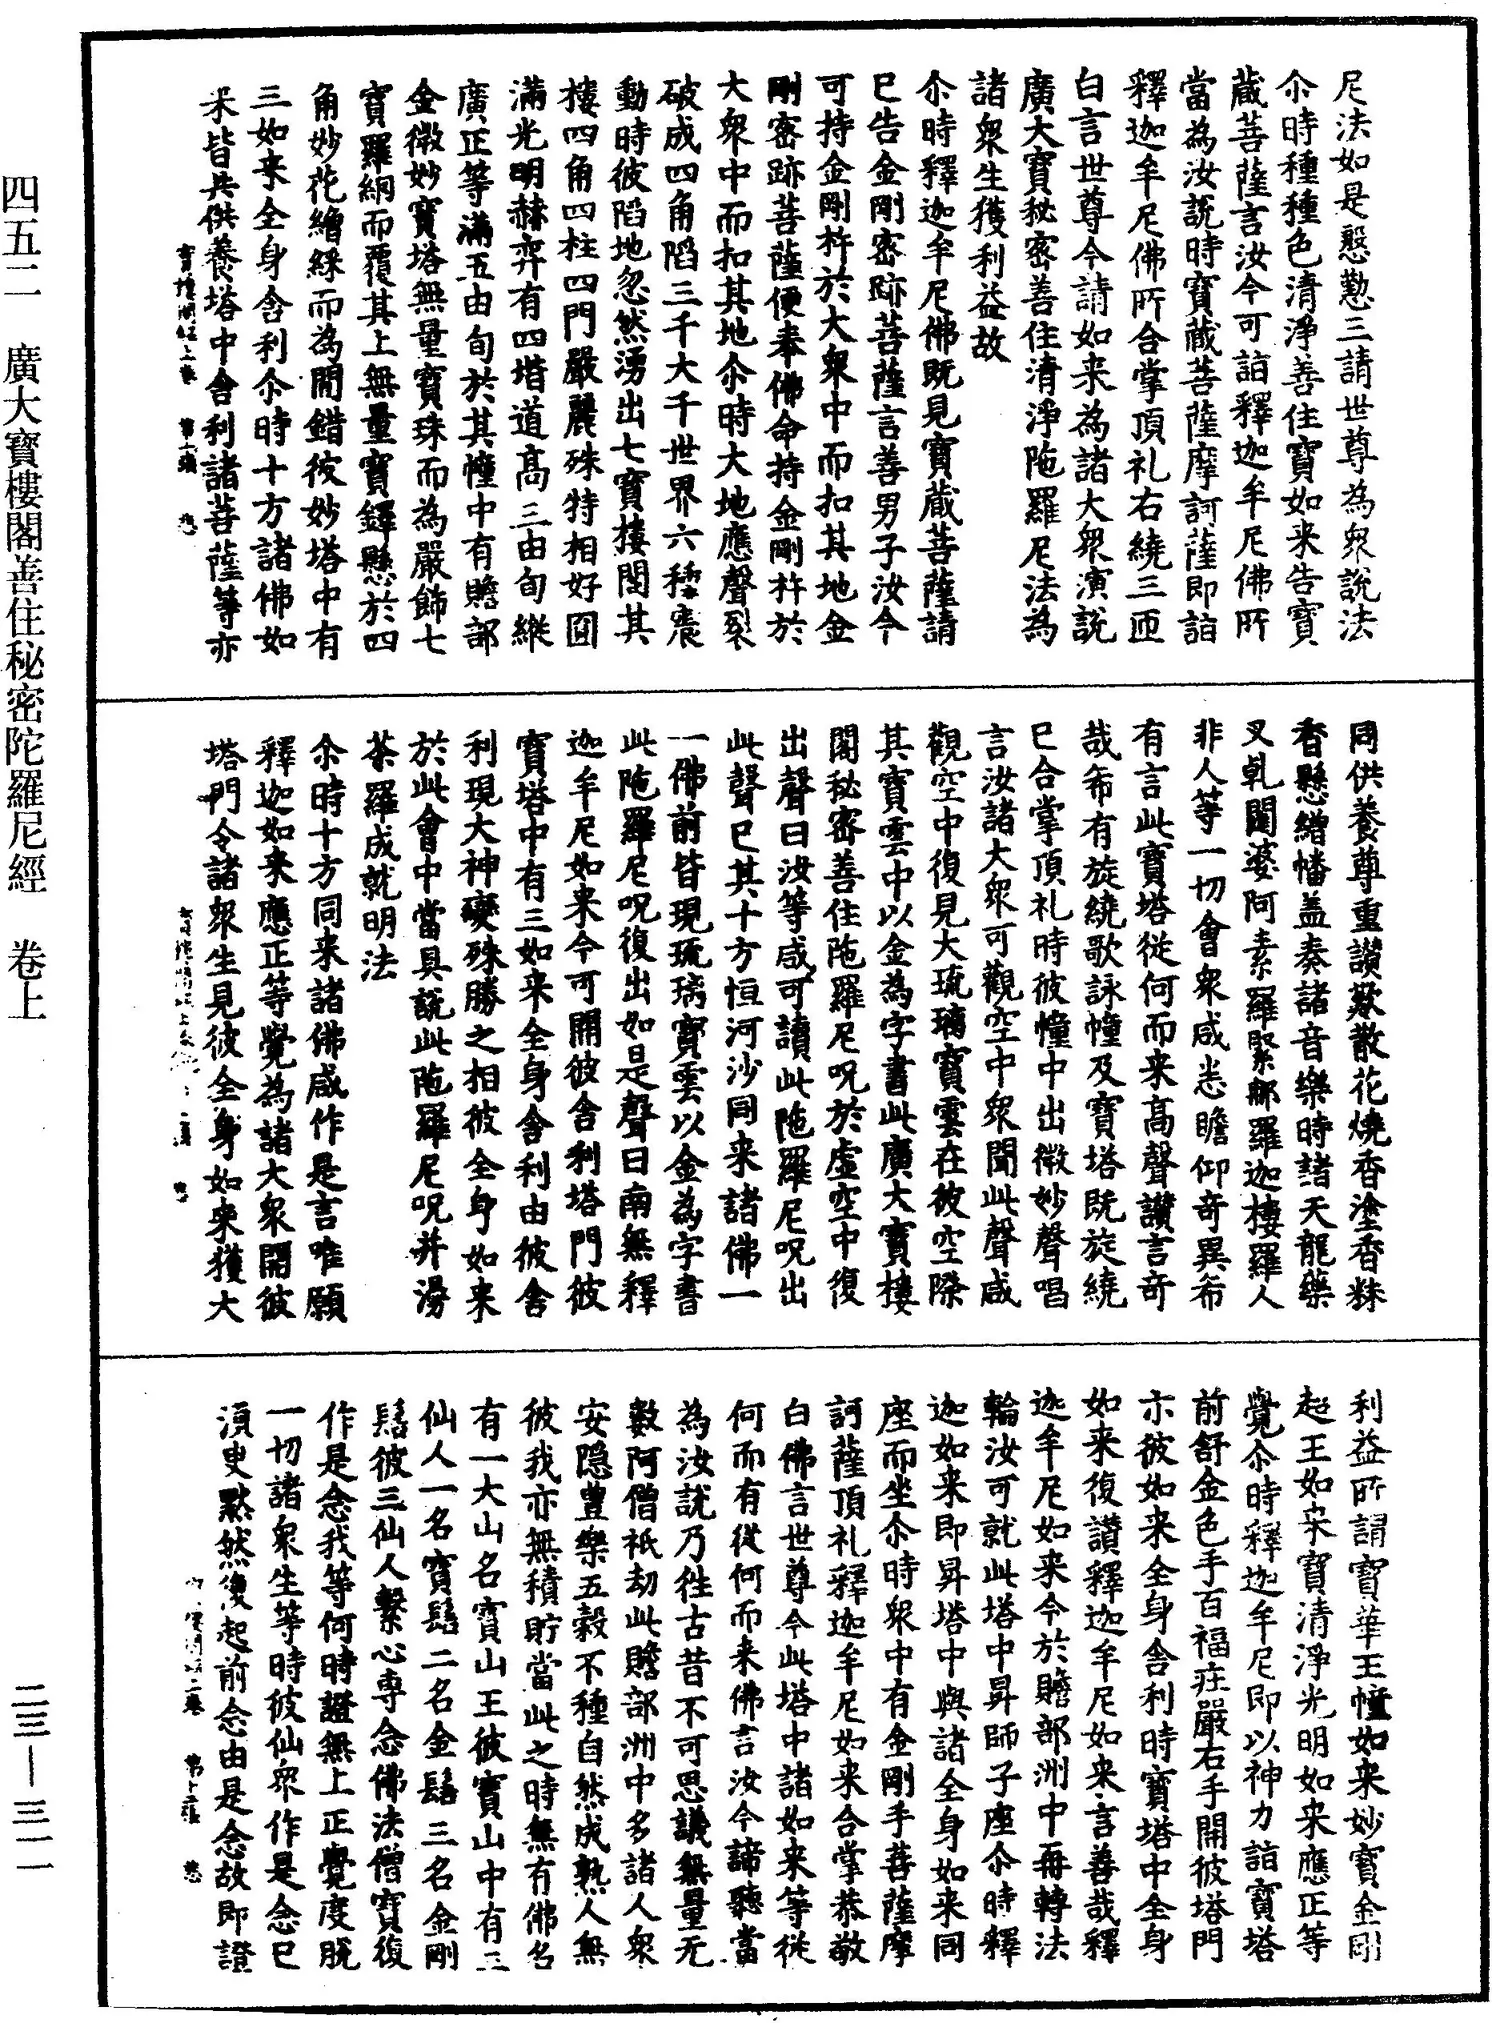 尼法如是慇懃三請世尊為衆說法
尒時種種色清淨善住寶如来告寶
藏菩薩言汝今可詣釋迦牟尼佛所
當為汝說時寶藏菩薩摩訶薩即詣
釋迦牟尼佛所合掌頂礼右繞三匝
白言世尊今請如来為諸大衆演說
廣大寶秘密善住清淨陁羅尼法為
諸衆生獲利益故
尒時釋迦牟尼佛既見寶藏菩薩請
已告金剛密跡菩薩言善男子汝今
可持金剛杵於大衆中而扣其地金
剛密跡菩薩便奉佛命持金剛杵於
大衆中而扣其地尒時大地應聲裂
破成四角陷三千大千世界六種震
動時彼陷地忽然湧出七寶樓閣其
樓四角四柱四門嚴麗殊特相好圓
滿光明赫弈有四堦道高三由旬縱
廣正等滿五由旬於其幢中有贍部
金微妙寶塔無量寶珠而為嚴飾七
寶羅網而覆其上無量寶鐸懸於四
角妙花繒綵而為間錯彼妙塔中有
三如来全身舍利尒時十方諸佛如
来皆共供養塔中舍利諸菩薩等亦
同供養尊重讚歎散花燒香塗香粖
香懸繒幡盖奏諸音樂時諸天龍藥
叉乹闥婆阿素羅緊那羅迦樓羅人
非人等一切會衆咸悉瞻仰竒異希
有言此寶塔從何而来高聲讚言竒
哉希有旋繞歌詠幢及寶塔既旋繞
已合掌頂礼時彼幢中出微妙聲唱
言汝諸大衆可觀空中衆聞此聲咸
觀空中復見大琉璃寶雲在彼空際
其寶雲中以金為字書此廣大寶樓
閣秘密善住陁羅尼呪於虛空中復
出聲曰汝等咸可讀此陁羅尼呪出
此聲已其十方恒河沙同来諸佛一
一佛前皆現琉璃寶雲以金為字書
此陁羅尼呪復出如是聲曰南無釋
迦牟尼如来今可開彼舍利塔門彼
寶塔中有三如来全身舍利由彼舍
利現大神變殊勝之相彼全身如来
於此會中當具說此陁羅尼呪并湯
荼羅成就明法
尒時十方同来諸佛咸作是言唯願
釋迦如来應正等覺為諸大衆開彼
塔門令諸衆生見彼全身如来獲大
利益所謂寶華王幢如来妙寶金剛
起王如来寶清淨光明如来應正等
覺尒時釋迦牟尼即以神力詣寶塔
前舒金色手百福莊嚴右手開彼塔門
示彼如来全身舍利時寶塔中全身
如来復讚釋迦牟尼如来言善哉釋
迦牟尼如来今於贍部洲中再轉法
輪汝可就此塔中昇師子座尒時釋
迦如来即昇塔中與諸全身如来同
座而坐尒時衆中有金剛手菩薩摩
訶薩頂礼釋迦牟尼如来合掌恭敬
白佛言世尊今此塔中諸如来等從
何而有從何而来佛言汝今諦聽當
為汝說乃徃古昔不可思議無量无
數阿僧祇劫此贍部洲中多諸人衆
安隠豊樂五穀不種自然成熟人無
彼我亦無積貯當此之時無有佛名
有一大山名寶山王彼寶山中有三
仙人一名寶髻二名金髻三名金剛
髻彼三仙人繫心專念佛法僧寶復
作是念我等何時證無上正覺度脫
一切諸衆生等時彼仙衆作是念已
湏臾默然復起前念由是念故即證
四五二　廣大寶樓閣善住秘密陀羅尼經　卷上
二三—三一一